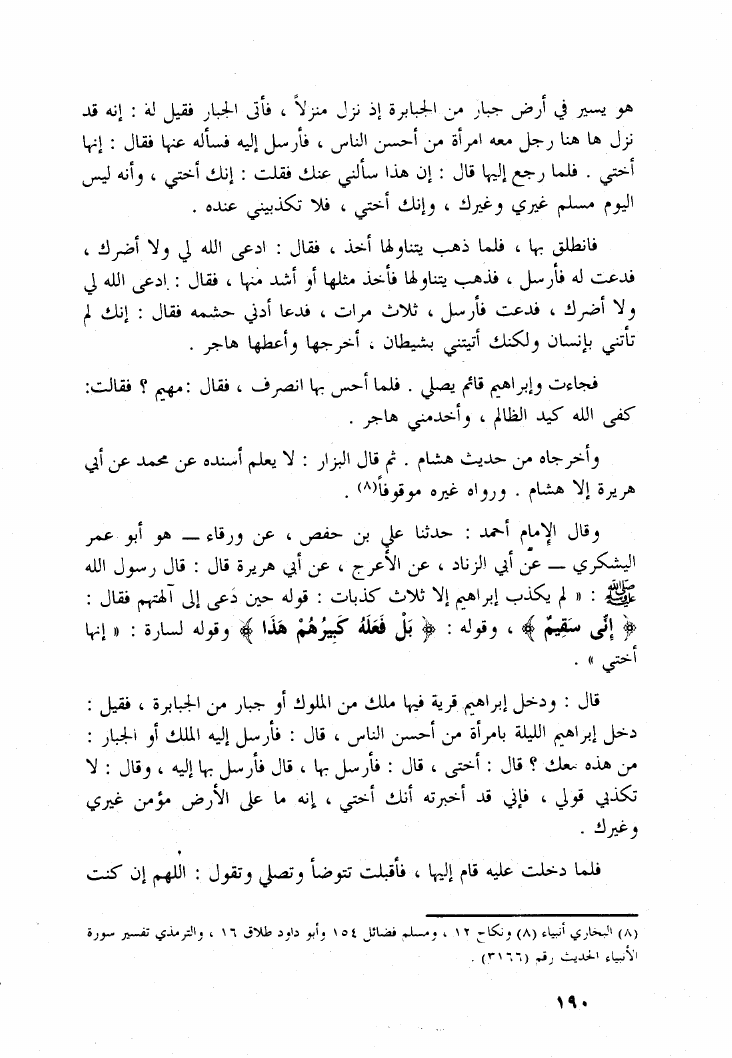 هو يسير في أرض جبار من الجبابرة إذ نزل منزلاً ، فأتى الجبار فقيل له : إنه قد
نزل ها هنا رجل معه امرأة من أحسن الناس ، فأرسل إليه فسأله عنها فقال : إنها
أختي . فلما رجع إليها قال : إن هذا سألني عنك فقلت : إنك أختي ، وأنه ليس
اليوم مسلم غيري وغيرك ، وإنك أختي ، فلا تكذبيني عنده .
فانطلق بها ، فلما ذهب يتناولها أخذ ، فقال : ادعى الله لي ولا أضرك ،
فدعت له فأرسل ، فذهب يتناولها فأخذ مثلها أو أشد منها ، فقال : ادعى الله لي
ولا أضرك ، فدعت فأرسل ، ثلاث مرات ، فدعا أدني حشمه فقال : إنك لم
تأتني بإنسان ولكنك أتيتني بشيطان ، أخرجها وأعطها هاجر .
فجاءت وإبراهيم قائم يصلي . فلما أحس بها انصرف ، فقال :مهيم ؟ فقالت:
كفى الله كيد الظالم ، وأخدمني هاجر .
وأخرجاه من حديث هشام . ثم قال البزار : لا يعلم أسنده عن محمد عن أبي
هريرة إلا هشام . ورواه غيره موقوفاً(٨) .
وقال الإمام أحمد : حدثنا علي بن حفص ، عن ورقاء — هو أبو عمر
اليشكري — عن أبي الزناد ، عن الأعرج ، عن أبي هريرة قال : قال رسول الله
ﷺ : « لم يكذب إبراهيم إلا ثلاث كذبات : قوله حين دعى إلى آلهتهم فقال :
﴿ إِنِّى سَقِيمٌ ﴾ ، وقوله : ﴿ بَلْ فَعَلَهُ كَبِيرُهُمْ هَذَا ﴾ وقوله لسارة : « إنها
أختي » .
قال : ودخل إبراهيم قرية فيها ملك من الملوك أو جبار من الجبابرة ، فقيل :
دخل إبراهيم الليلة بامرأة من أحسن الناس ، قال : فأرسل إليه الملك أو الجبار :
من هذه معك ؟ قال : أختى ، قال : فأرسل بها ، قال فأرسل بها إليه ، وقال : لا
تكذبي قولي ، فإني قد أخبرته أنك أختي ، إنه ما على الأرض مؤمن غيري
وغيرك .
فلما دخلت عليه قام إليها ، فأقبلت تتوضأ وتصلي وتقول : اللهم إن كنت
(٨) البخاري أنبياء (٨) ونكاح ١٢ ، ومسلم فضائل ١٥٤ وأبو داود طلاق ١٦ ، والترمذي تفسير سورة
الأنبياء الحديث رقم (٣١٦٦) .
١٩٠